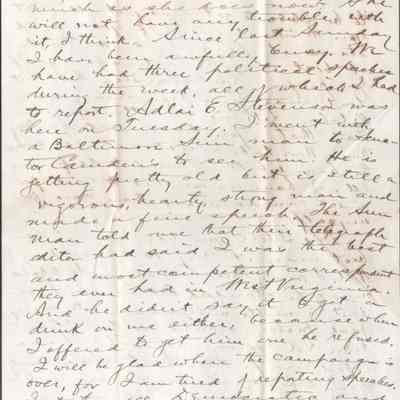 much as she does most. She
will not have any trouble with
it, I think. Since last Sunday
I have been awfully busy. We
have had three political speeches
during the week, all of which I had
to report. Adlai E. Stevenson was
here on Tuesday. I went with
a Baltimore Sun man to Sena-
tor Camden's to see him. He is
getting pretty old but is still a
vigorous, hearty, strong man and
made a fine speech. The Sun
man told me that their telegraph
editor had said I was the best
and most competent correspondent
they ever had in West Virginia.
And he didn't say it to get a
drink on me either, because when
I offered to get him one, he refused.
I will be glad when the campaign is
over, for I am tired of reporting speeches.
Democratic and